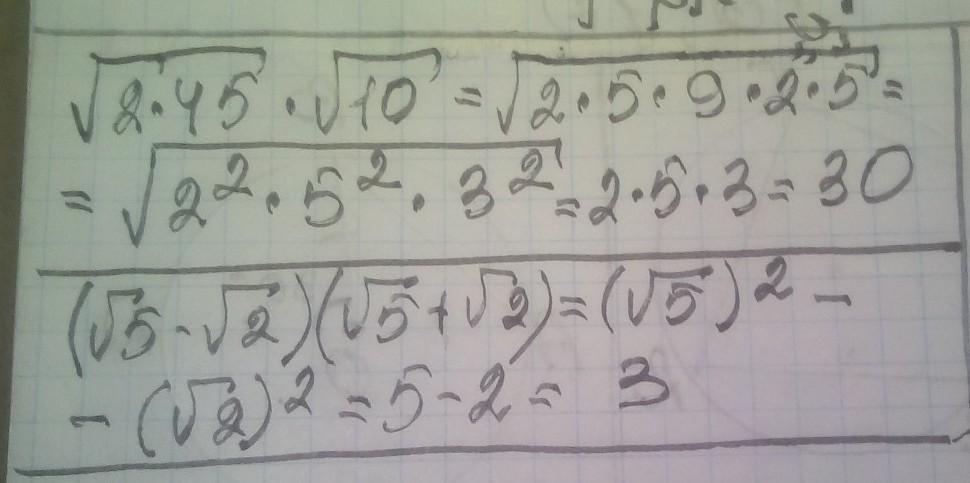 √2·45 · √10 = √2·5·9·2·5 =
= √2²·5²·3² = 2·5·3 = 30
(√5-√2)(√5+√2) = (√5)² -
- (√2)² = 5-2 = 3